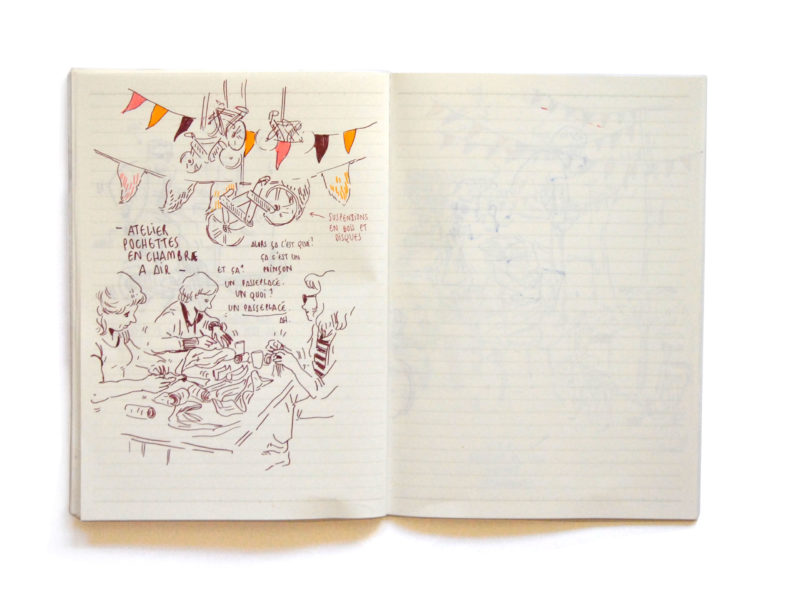 SUSPENSIONS
EN BOIS ET
DISQUES
- ATELIER
POCHETTES
EN CHAMBRE
A AIR -
ALORS ÇA C'EST QUOI?
ÇA C'EST UN
ET ÇA?
UN PASSEPLACÉ.
UN QUOI?
UN PASSEPLACÉ.
AH.